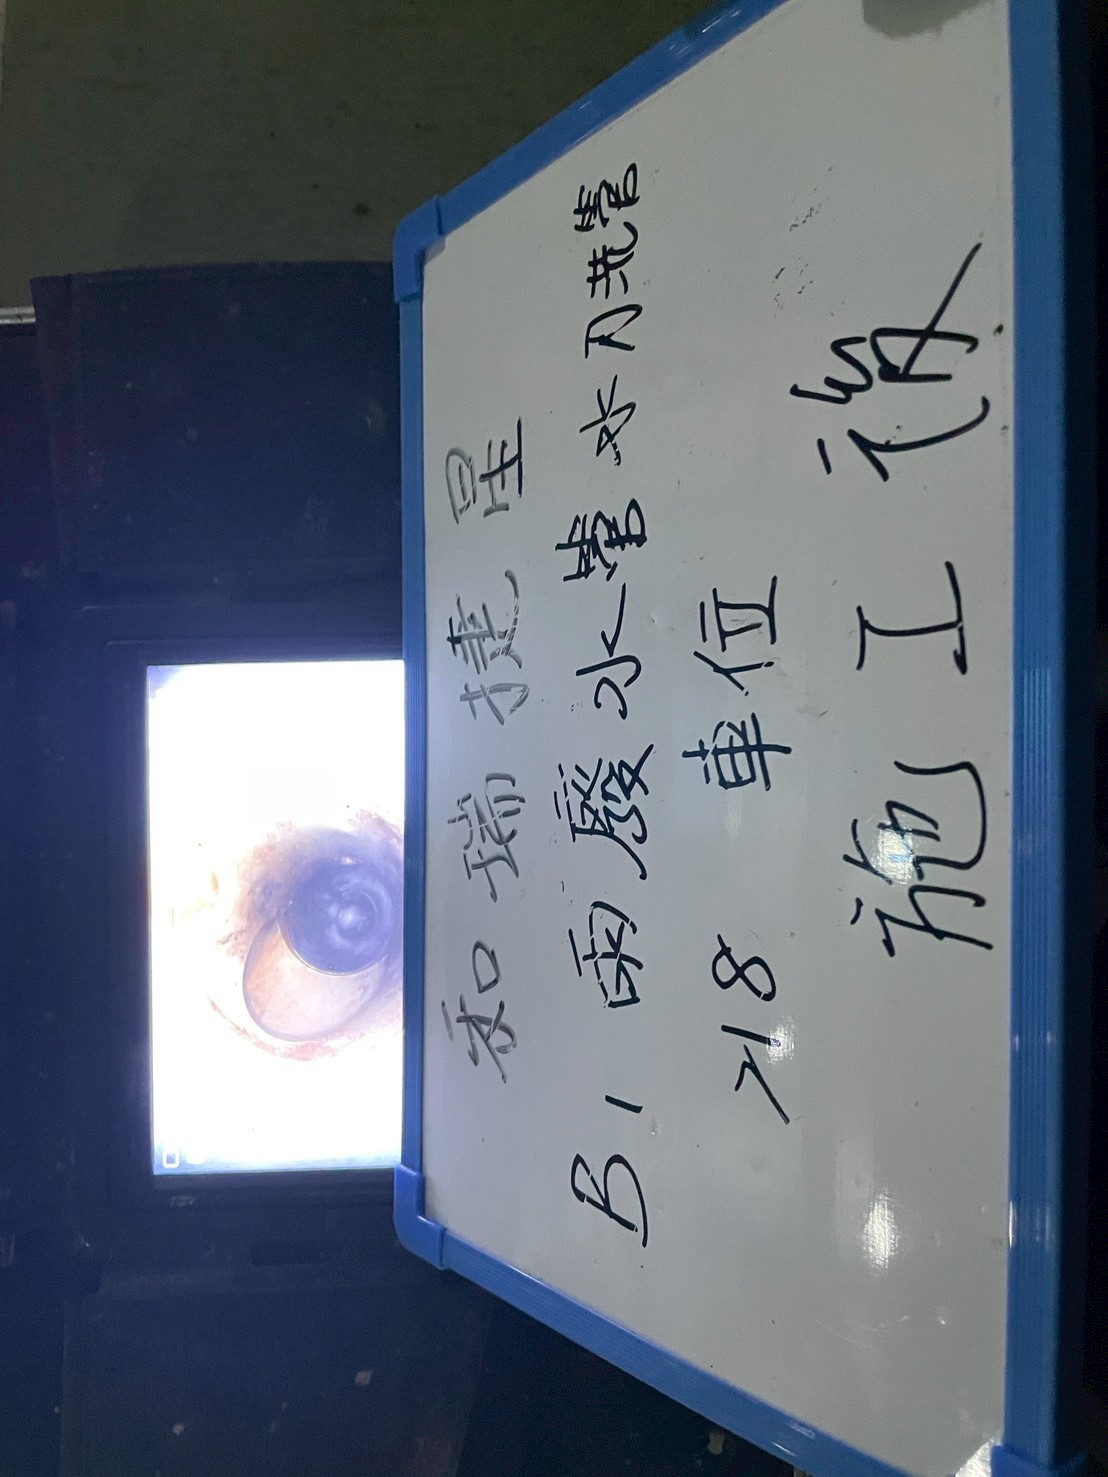 和瑞捷星
B1 雨廢水管水刀洗管
218 車位
施工後